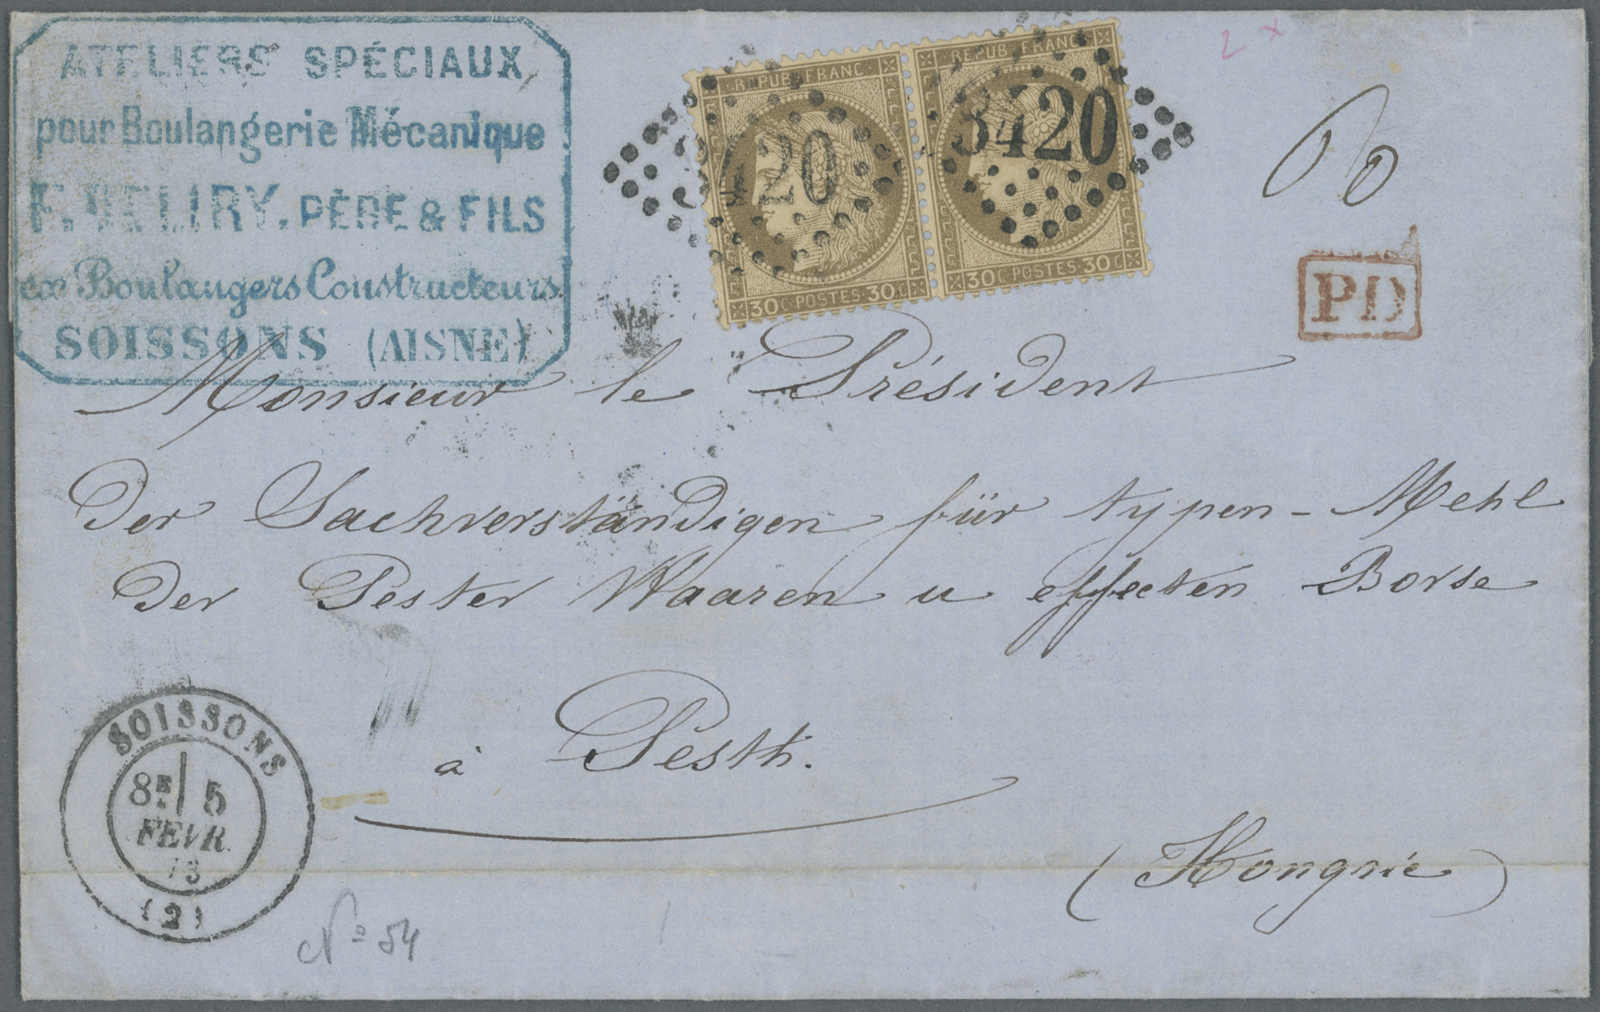 ATELIERS SPÉCIAUX
pour Boulangerie Mécanique
F. DELIRY, PÈRE & FILS
ex Boulangers Constructeurs
SOISSONS (AISNE)
REPUB. FRANC.
30 C POSTES 30 C
REPUB. FRANC.
30 C POSTES 30 C
3420
3420
2 x
60
PD
Monsieur le Président
Der Sachverständigen für typen - Mehl
Der Pester Waaren u effecten Borse
à Pesth.
(Hongrie)
SOISSONS
8E 5
FEVR.
73
(2)
No 54